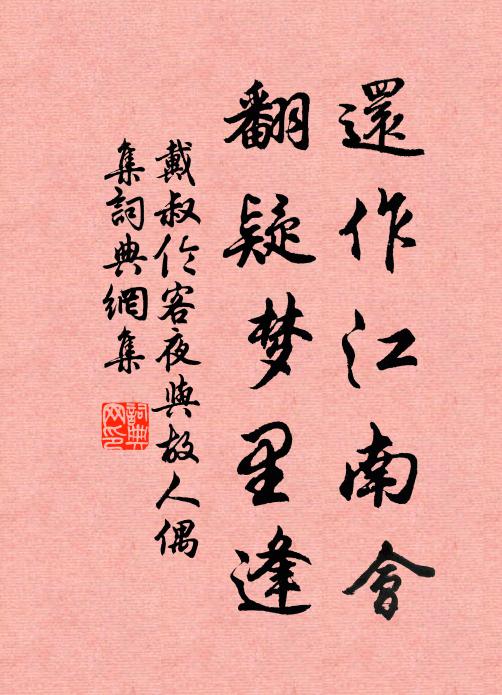 還作江南會
翻疑梦里逢
戴叔伦客夜與故人偶
集詞典網集
詞典網印